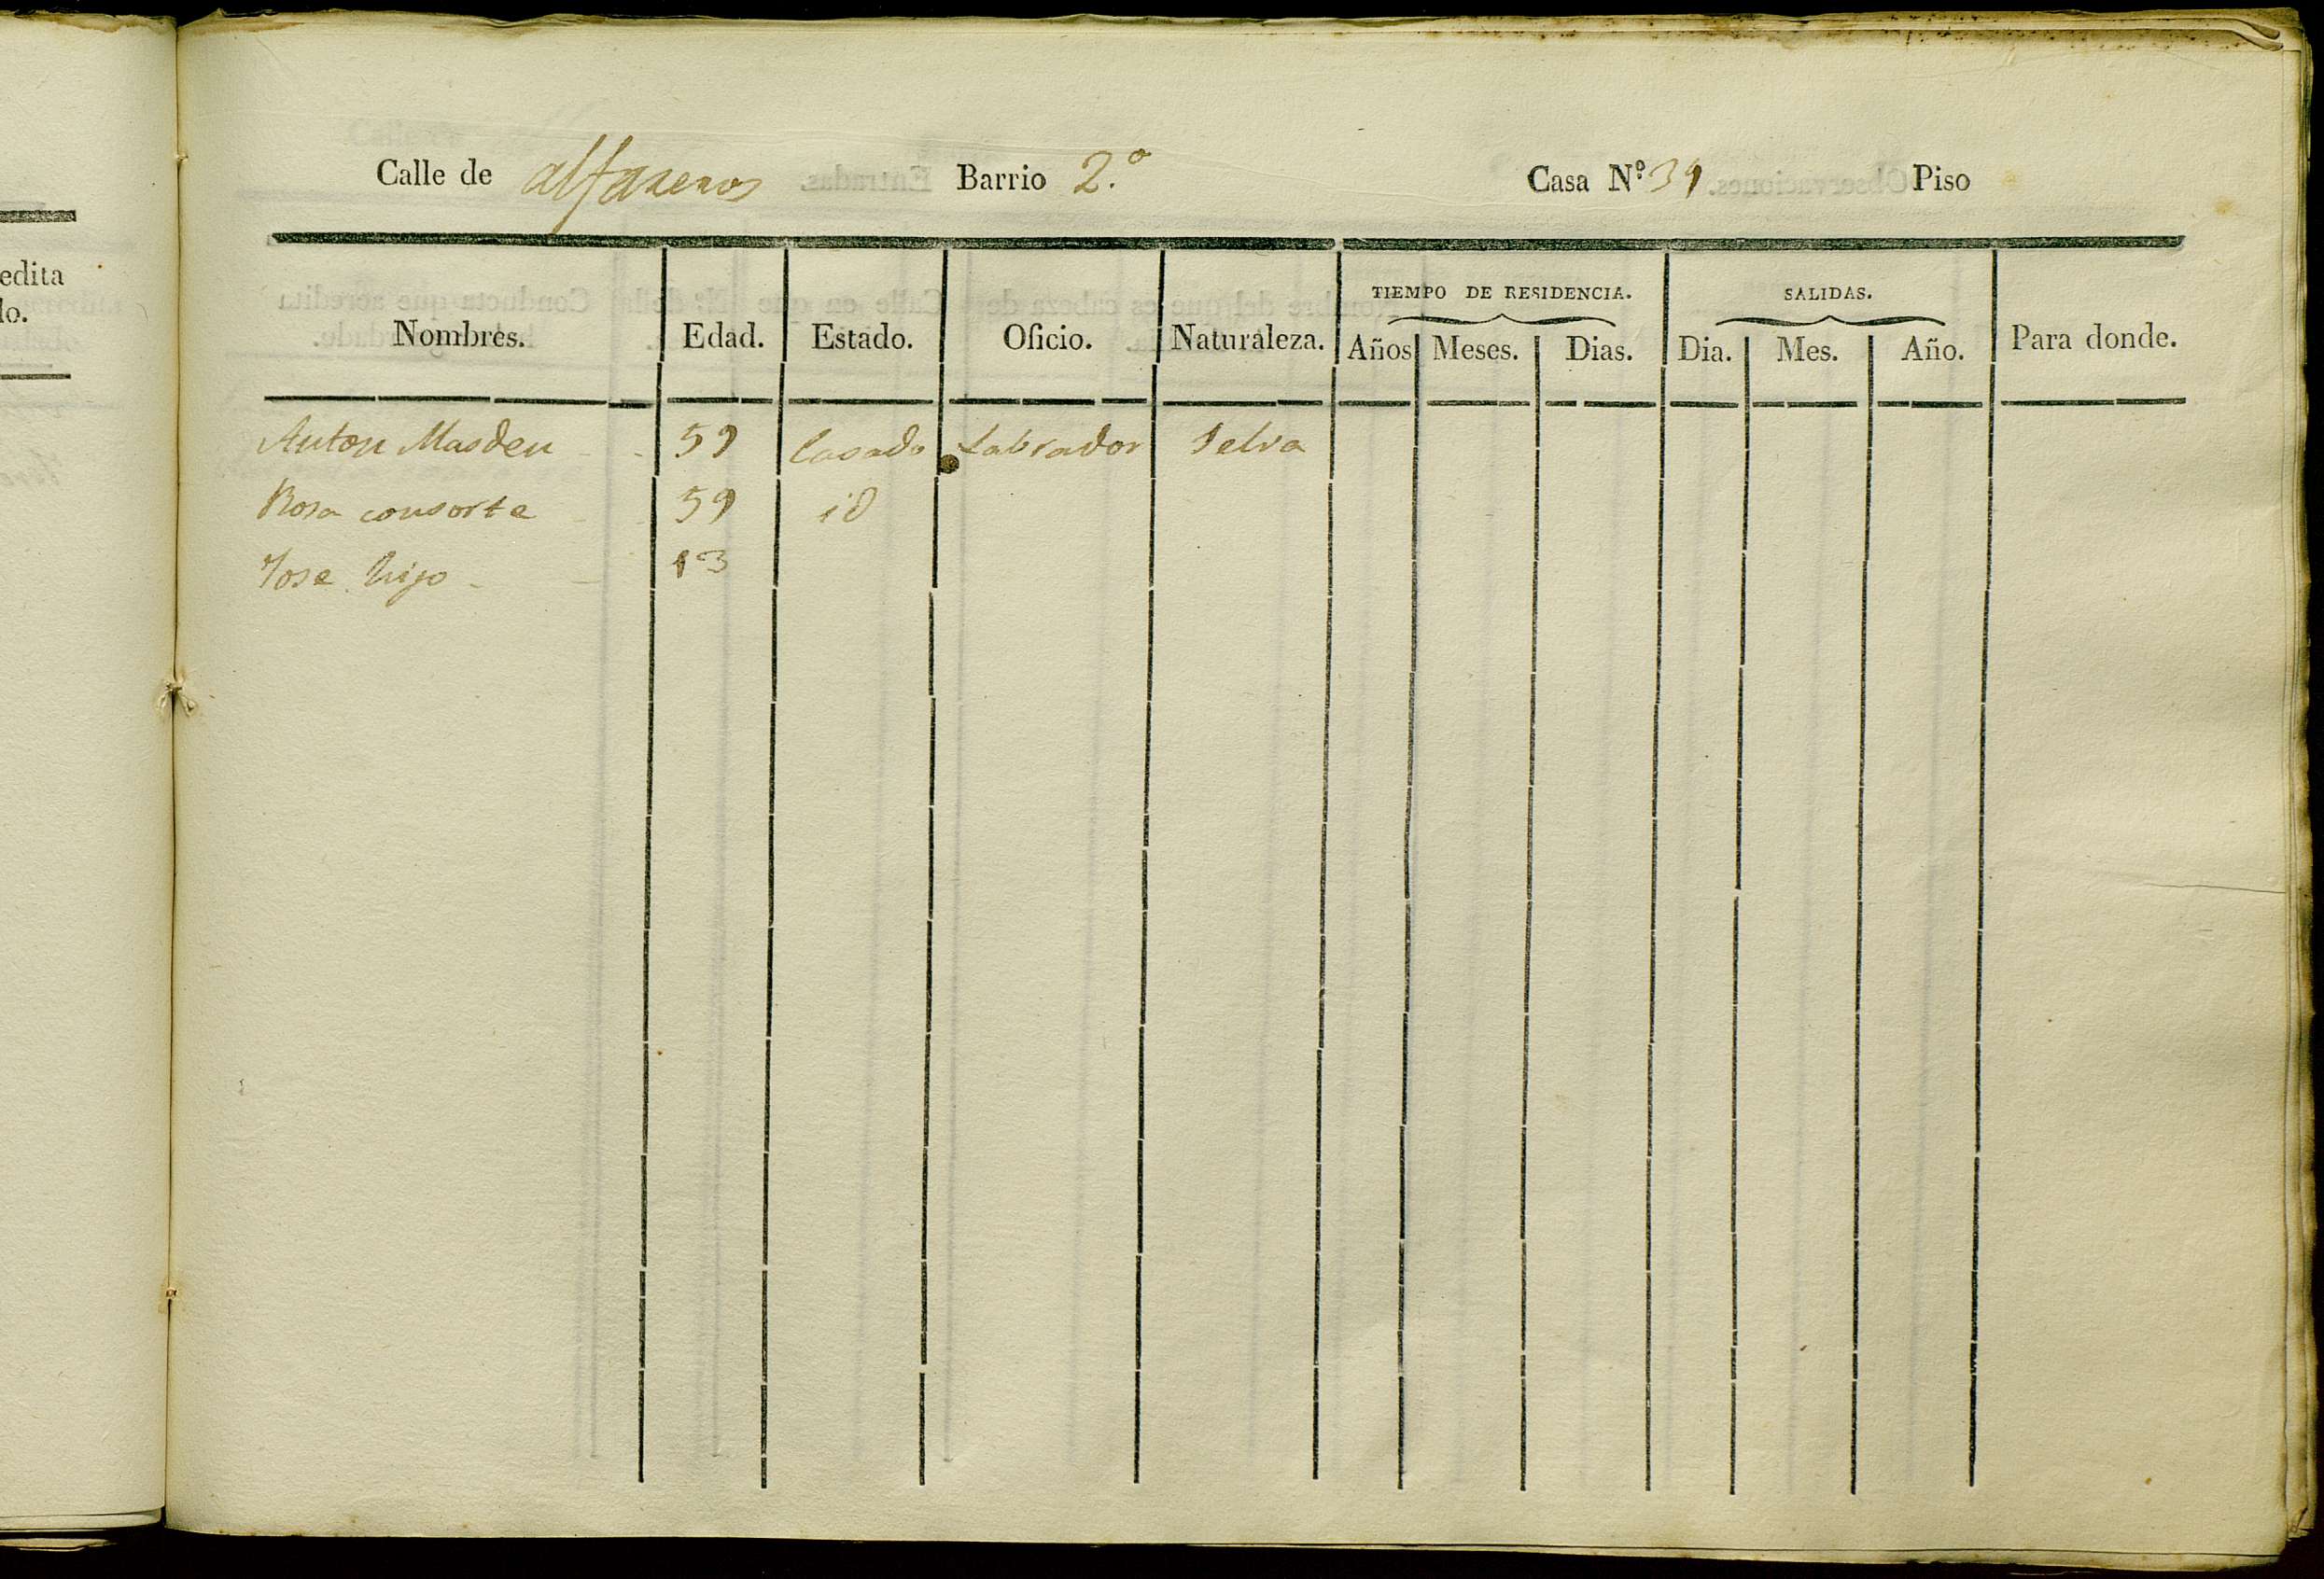 Calle de alfareros Barrio 2.º Casa N.º 39 Piso
edita
lo.
TIEMPO DE RESIDENCIA. SALIDAS.
Nombres. Edad. Estado. Oficio. Naturaleza. Años Meses. Dias. Dia. Mes. Año. Para donde.
Anton Masdeu 59 Casado Labrador Selva
Rosa consorte 59 id
Jose hijo 13